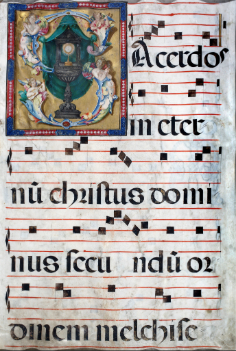 Sacerdos
in eter
nū christus domi
nus secu ndū or
dinem melchise